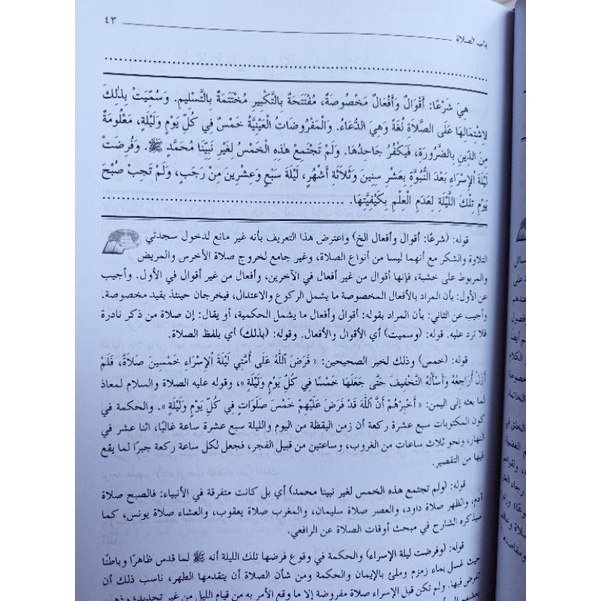 باب الصلاة ٤٣
هِيَ شَرْعًا: أَقْوَالٌ وَأَفْعَالٌ مَخْصُوصَةٌ، مُفْتَتَحَةٌ بِالتَّكْبِيرِ مُخْتَتَمَةٌ بِالتَّسْلِيمِ. وَسُمِّيَتْ بِذَلِكَ
لِاشْتِمَالِهَا عَلَى الصَّلَاةِ لُغَةً وَهِيَ الدُّعَاءُ. وَالْمَفْرُوضَاتُ الْعَيْنِيَّةُ خَمْسٌ فِي كُلِّ يَوْمٍ وَلَيْلَةٍ، مَعْلُومَةٌ
مِنَ الدِّينِ بِالضَّرُورَةِ، فَيَكْفُرُ جَاحِدُهَا. وَلَمْ تَجْتَمِعْ هَذِهِ الْخَمْسُ لِغَيْرِ نَبِيِّنَا مُحَمَّدٍ ﷺ. وَفُرِضَتْ
لَيْلَةَ الْإِسْرَاءِ بَعْدَ النُّبُوَّةِ بِعَشْرِ سِنِينَ وَثَلَاثَةِ أَشْهُرٍ، لَيْلَةَ سَبْعٍ وَعِشْرِينَ مِنْ رَجَبٍ، وَلَمْ تَجِبْ صُبْحُ
يَوْمِ تِلْكَ اللَّيْلَةِ لِعَدَمِ الْعِلْمِ بِكَيْفِيَّتِهَا.
قوله: (شرعًا: أقوال وأفعال الخ) واعترض هذا التعريف بأنه غير مانع لدخول سجدتي
التلاوة والشكر مع أنهما ليسا من أنواع الصلاة، وغير جامع لخروج صلاة الأخرس والمريض
والمربوط على خشبة، فإنها أقوال من غير أفعال في الآخرين، وأفعال من غير أقوال في الأول. وأجيب
عن الأول: بأن المراد بالأفعال المخصوصة ما يشمل الركوع والاعتدال، فيخرجان حينئذ بقيد مخصوصة.
وأجيب عن الثاني: بأن المراد بقوله: أقوال وأفعال ما يشمل الحكمية، أو يقال: إن صلاة من ذكر نادرة
فلا ترد عليه. قوله: (وسميت) أي الأقوال والأفعال. وقوله: (بذلك) أي بلفظ الصلاة.
قوله: (خمس) وذلك لخبر الصحيحين: «فَرَضَ اللَّهُ عَلَى أُمَّتِي لَيْلَةَ الْإِسْرَاءِ خَمْسِينَ صَلَاةً، فَلَمْ
أَزَلْ أُرَاجِعُهُ وَأَسْأَلُهُ التَّخْفِيفَ حَتَّى جَعَلَهَا خَمْسًا فِي كُلِّ يَوْمٍ وَلَيْلَةٍ»، وقوله عليه الصلاة والسلام لمعاذ
لما بعثه إلى اليمن: «أَخْبِرْهُمْ أَنَّ اللَّهَ قَدْ فَرَضَ عَلَيْهِمْ خَمْسَ صَلَوَاتٍ فِي كُلِّ يَوْمٍ وَلَيْلَةٍ». والحكمة في
كون المكتوبات سبع عشرة ركعة أن زمن اليقظة من اليوم والليلة سبع عشرة ساعة غالبًا، اثنا عشر في
النهار، ونحو ثلاث ساعات من الغروب، وساعتين من قبيل الفجر، فجعل لكل ساعة ركعة جبرًا لما يقع
فيها من التقصير.
قوله: (ولم تجتمع هذه الخمس لغير نبينا محمد) أي بل كانت متفرقة في الأنبياء: فالصبح صلاة
آدم، والظهر صلاة داود، والعصر صلاة سليمان، والمغرب صلاة يعقوب، والعشاء صلاة يونس، كما
سيذكره الشارح في مبحث أوقات الصلاة عن الرافعي.
قوله: (وفرضت ليلة الإسراء) والحكمة في وقوع فرضها تلك الليلة أنه ﷺ لما قدس ظاهرًا وباطنًا
حيث غسل بماء زمزم وملئ بالإيمان والحكمة ومن شأن الصلاة أن يتقدمها الطهر، ناسب ذلك أن